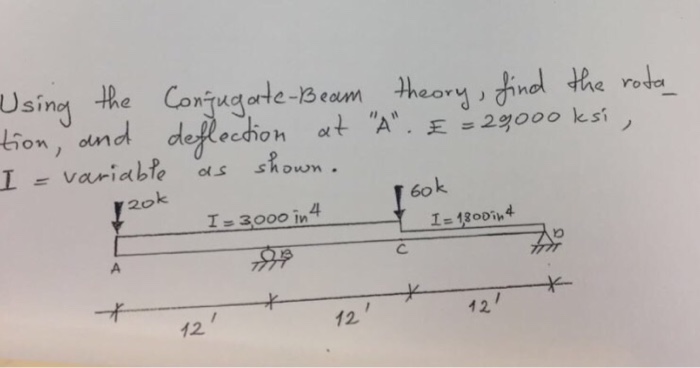 Using the Conjugate-Beam theory, find the rota_
tion, and deflection at "A". E = 29,000 ksi,
I = variable as shown.
20k
60k
I = 3,000 in⁴
I = 1,800 in⁴
A
B
C
D
12'
12'
12'